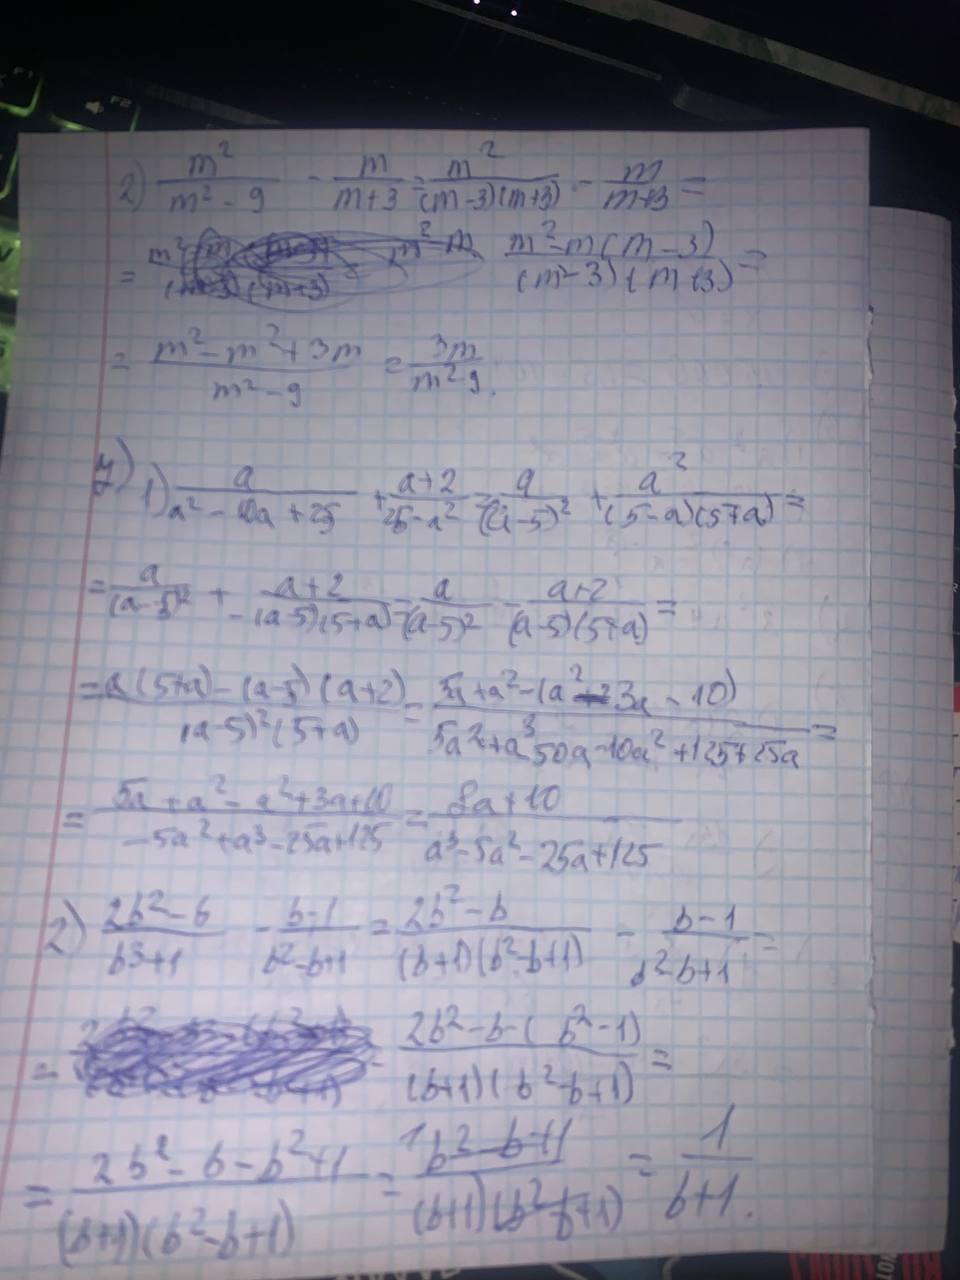 2) m²/(m² - 9) - m/(m+3) = m²/((m-3)(m+3)) - m/(m+3) =
= (m²-m(m-3))/((m²-3)(m+3)) =
= (m²-m²+3m)/(m²-9) = 3m/(m²-9).
1) a/(a² - 10a + 25) + (a+2)/(25-a²) = a/(a-5)² + a²/((5-a)(5+a)) =
= a/(a-5)² + (a+2)/(-(a-5)(5+a)) = a/(a-5)² - (a+2)/((a-5)(5+a)) =
= (a(5+a)-(a-5)(a+2))/((a-5)²(5+a)) = (5a+a²-(a²-3a-10))/(5a²+a³-50a-10a²+125+25a) =
= (5a+a²-a²+3a+10)/(-5a²+a³-25a+125) = (8a+10)/(a³-5a²-25a+125)
2) (2b²-b)/(b³+1) - (b-1)/(b²-b+1) = (2b²-b)/((b+1)(b²-b+1)) - (b-1)/(b²-b+1) =
= (2b²-b-(b²-1))/((b+1)(b²-b+1)) =
= (2b²-b-b²+1)/((b+1)(b²-b+1)) = (b²-b+1)/((b+1)(b²-b+1)) = 1/(b+1).